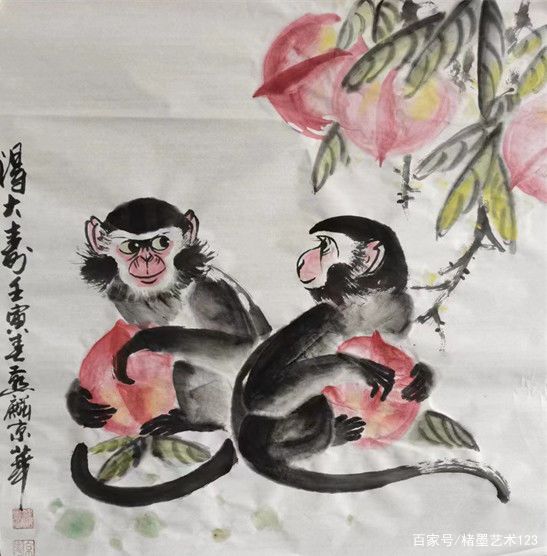 得大寿壬寅春燕麟京華
百家号/楮墨艺术123